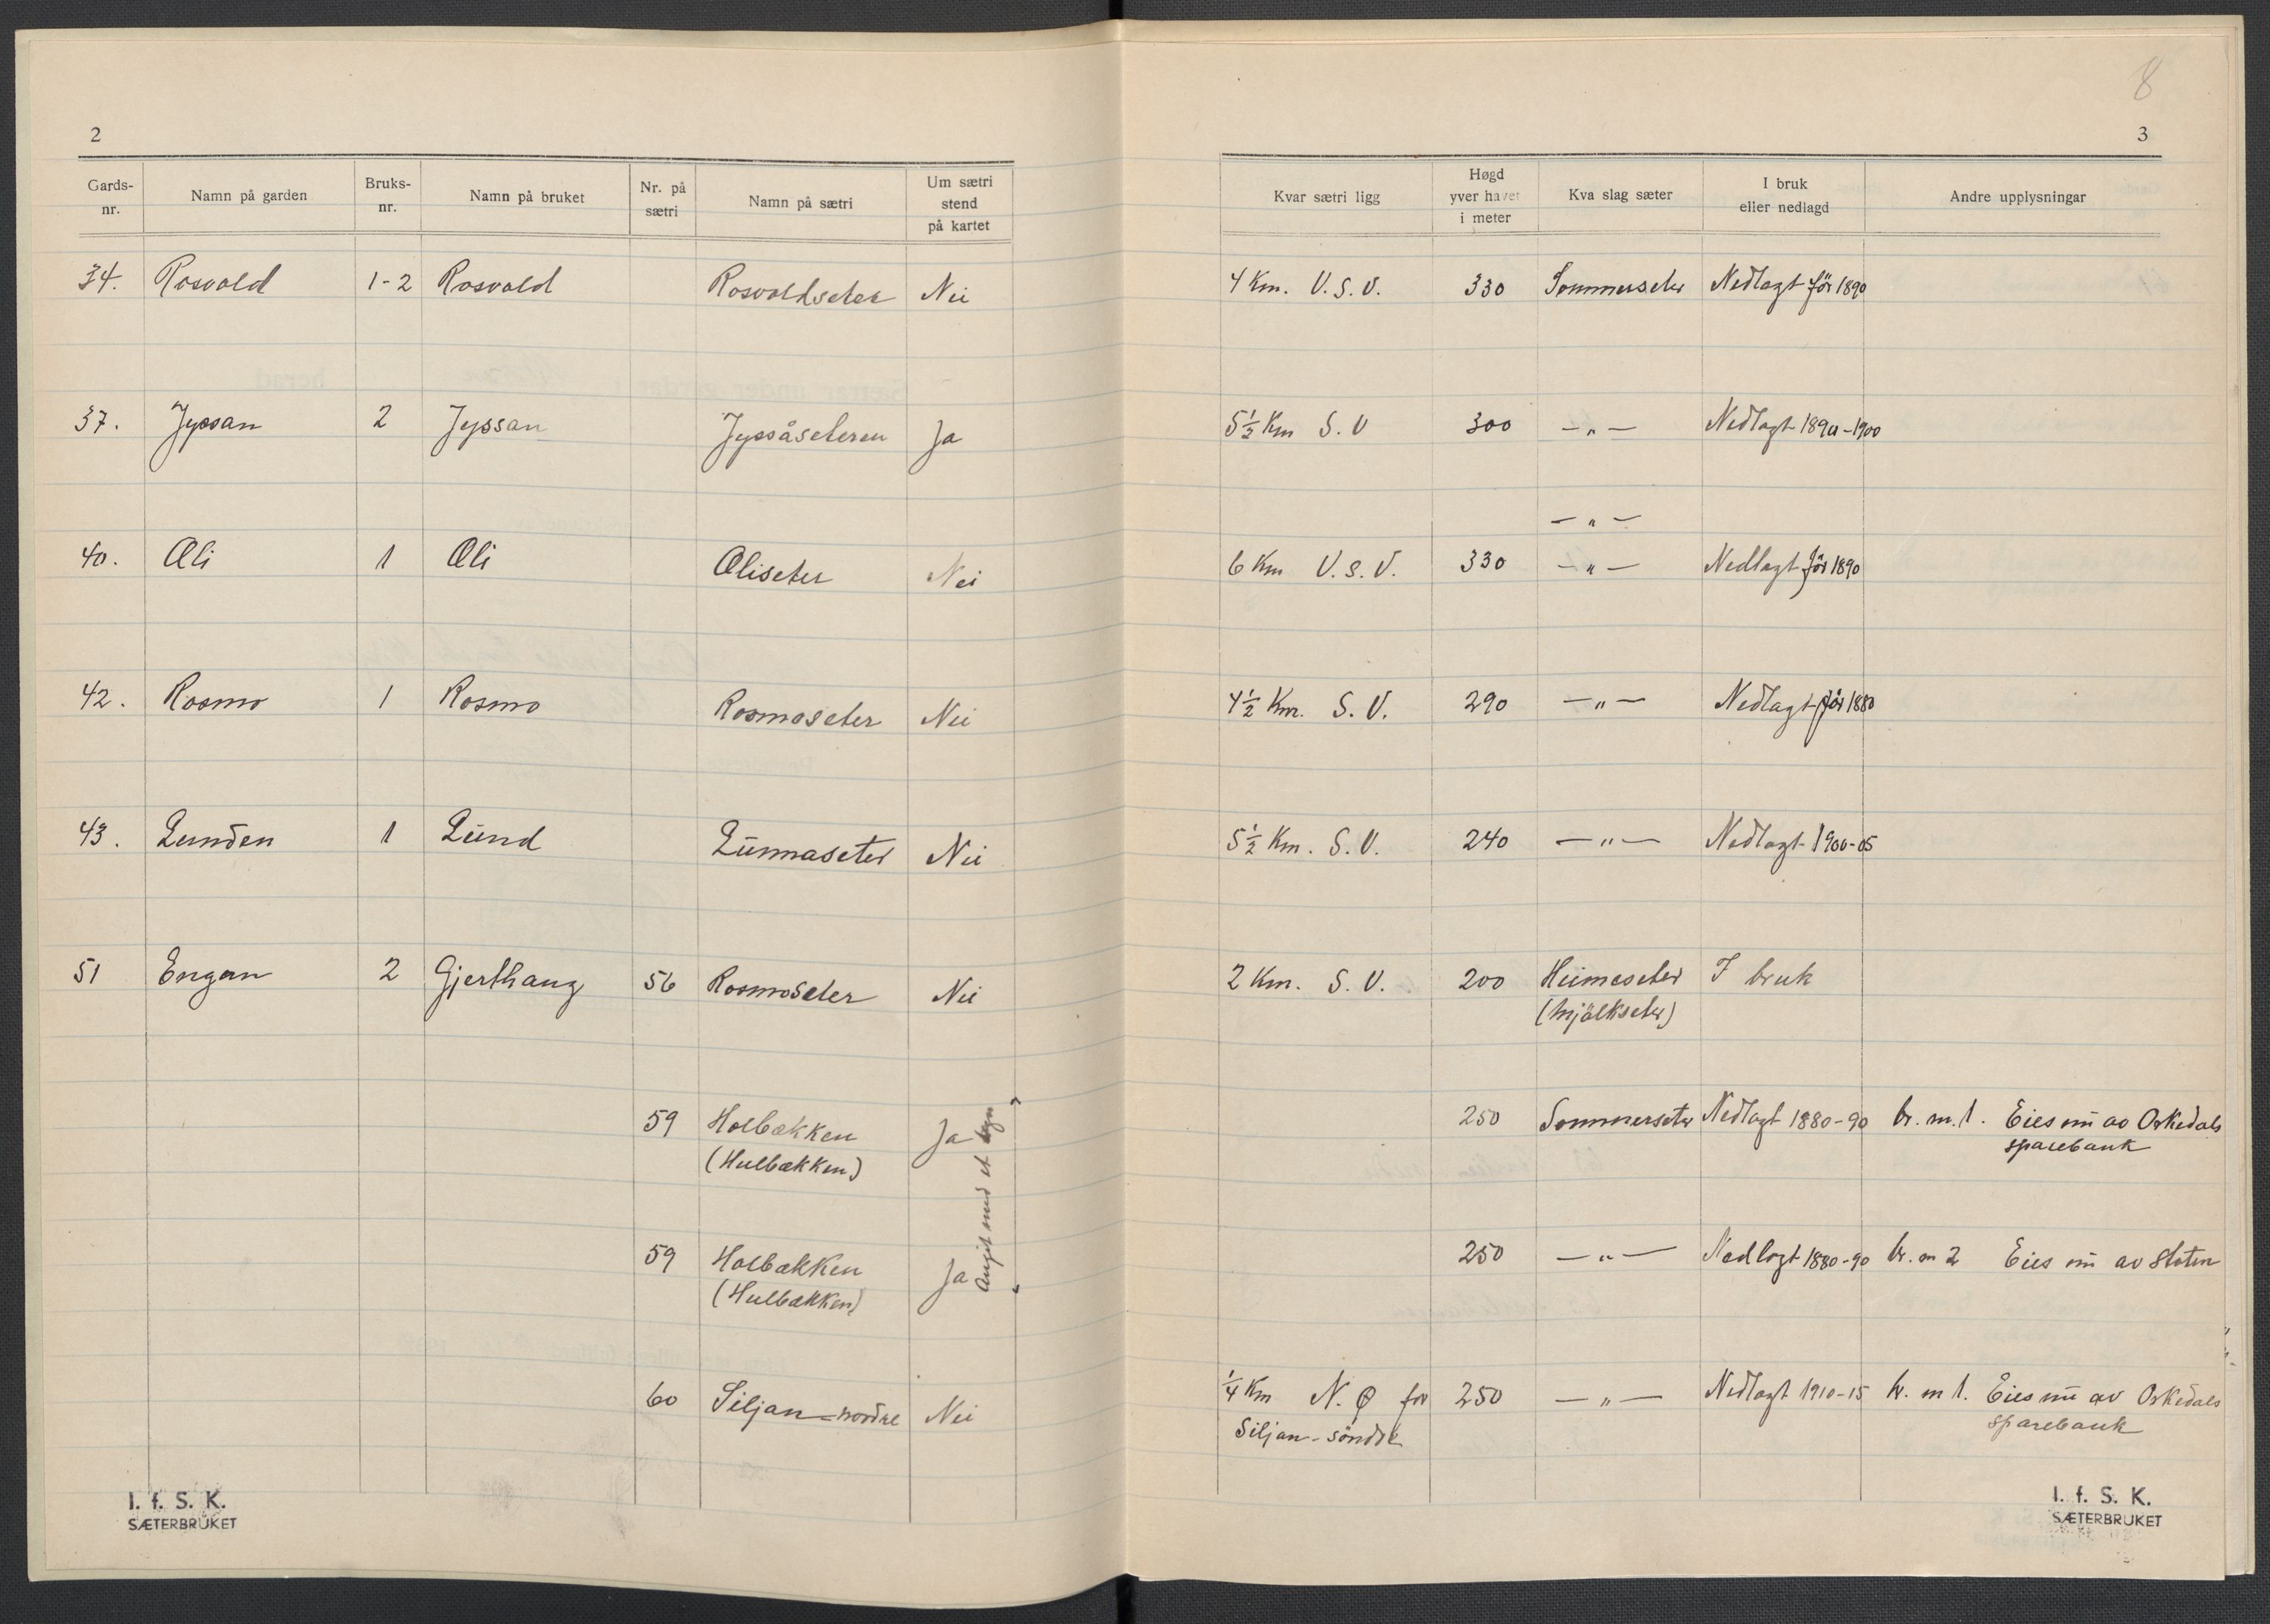 2
Gards-nr. Namn på garden Bruks-nr. Namn på bruket Nr. på sætri Namn på sætri Um sætri stend på kartet
34. Rosvold 1-2 Rosvold Rosvoldseter Nei
37. Jyssan 2 Jyssan Jyssåseteren Ja
40. Øli 1 Øli Øliseter Nei
42. Rosmo 1 Rosmo Rosmoseter Nei
43. Lunden 1 Lund Lunnaseter Nei
51 Engan 2 Gjerthaug 56 Rosmoseter Nei
59 Holbækken Ja
(Hulbækken)
59 Holbækken Ja
(Hulbækken)
Angit med et
60 Siljan-nordre Nei
I. f. S. K.
SÆTERBRUKET
8
3
Kvar sætri ligg Høgd yver havet i meter Kva slag sæter I bruk eller nedlagd Andre upplysningar
4 Km. V.S.V. 330 Sommerseter Nedlagt för 1890
5½ Km S.V 300 -„- Nedlagt 1890-1900
-„-
6 Km V.S.V. 330 -„- Nedlagt för 1890
4½ Km. S.V. 290 -„- Nedlagt för 1880
5½ Km. S.V. 240 -„- Nedlagt 1900-05
2 Km. S.V. 200 Heimeseter I bruk
(Mjölkseter)
250 Sommerseter Nedlagt 1880-90 br. m. 1. Eies nu av Orkedals
sparebank
250 -„- Nedlagt 1880-90 br. m 2 Eies nu av Staten
¼ Km N.Ø for 250 -„- Nedlagt 1910-15 br. m 1. Eies nu av Orkedals
Siljan-söndre sparebank
I. f. S. K.
SÆTERBRUKET